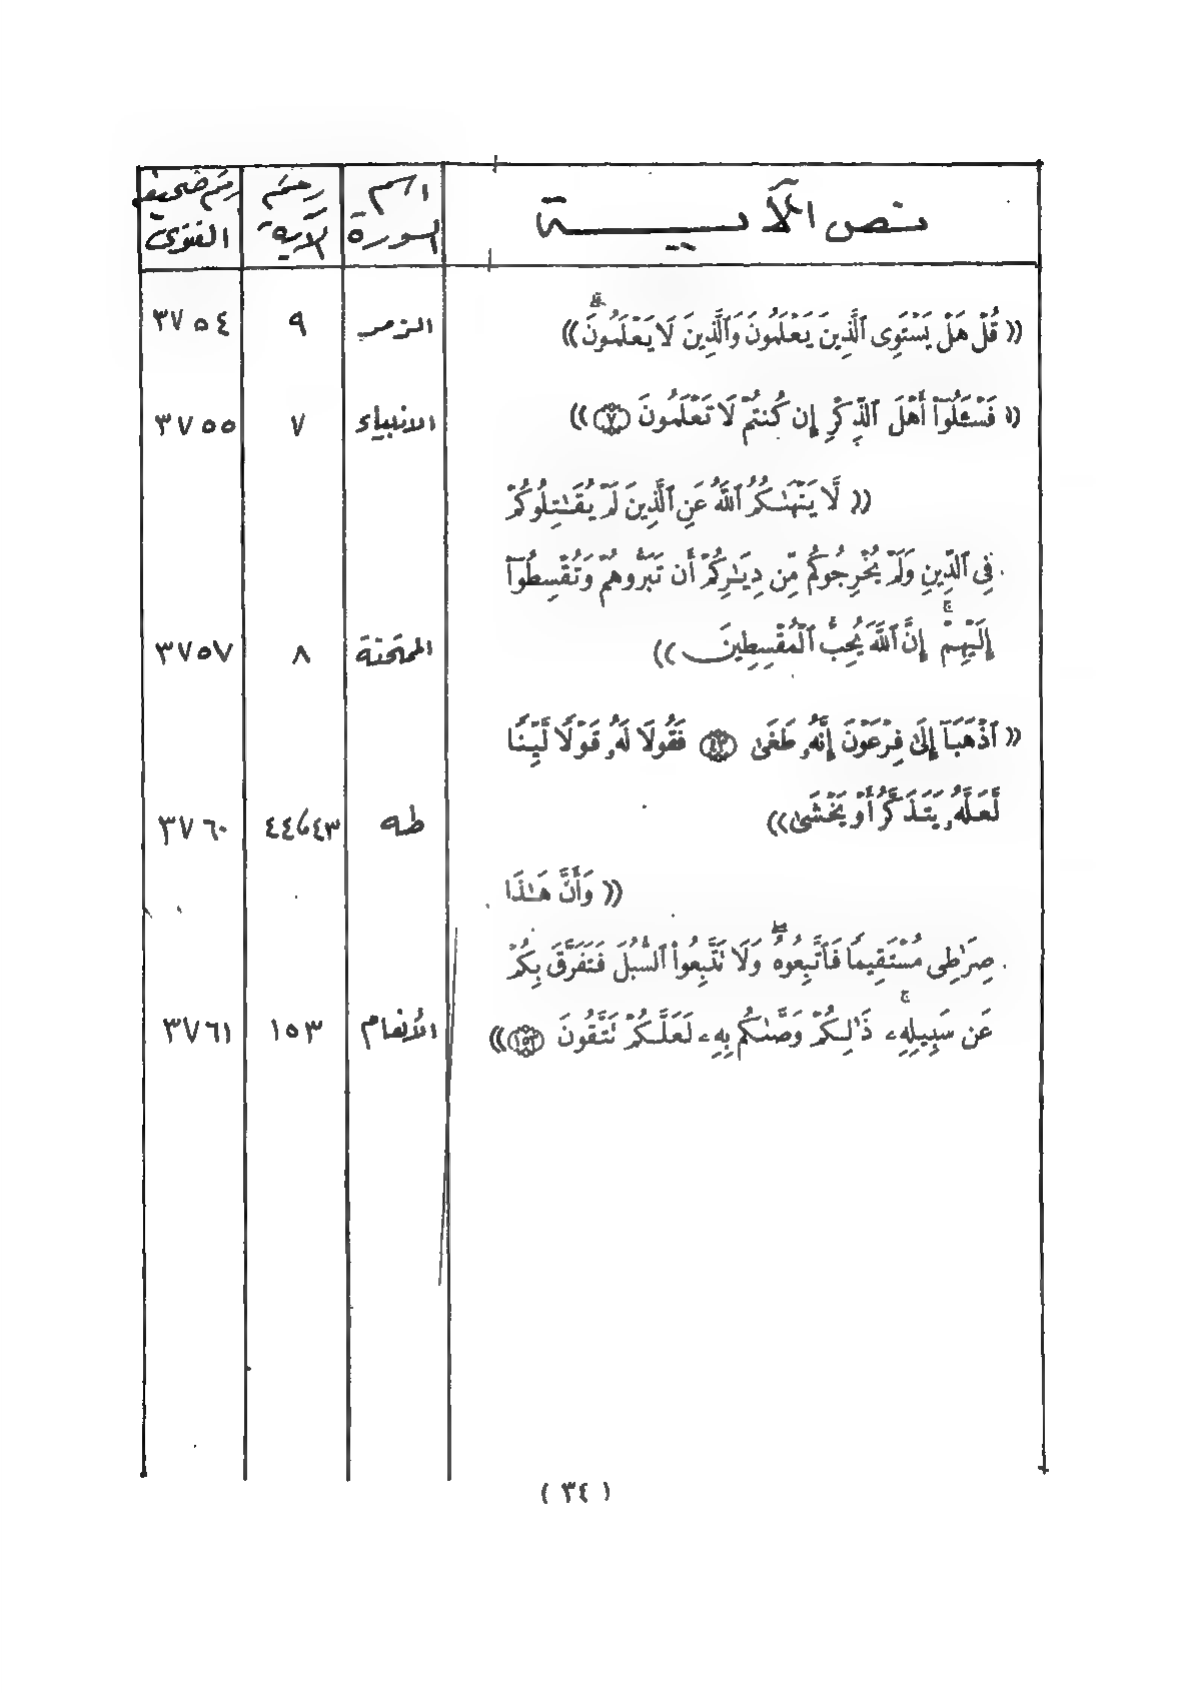 نص الآيــة اسم السورة رقم الآية رقم صحيفة الفتوى
(( قُلْ هَلْ يَسْتَوِى ٱلَّذِينَ يَعْلَمُونَ وَٱلَّذِينَ لَا يَعْلَمُونَۗ )) الزمر ٩ ٣٧٥٤
(( فَسْـَٔلُوٓا۟ أَهْلَ ٱلذِّكْرِ إِن كُنتُمْ لَا تَعْلَمُونَ ٧ )) الانبياء ٧ ٣٧٥٥
(( لَّا يَنْهَىٰكُمُ ٱللَّهُ عَنِ ٱلَّذِينَ لَمْ يُقَـٰتِلُوكُمْ
فِى ٱلدِّينِ وَلَمْ يُخْرِجُوكُم مِّن دِيَـٰرِكُمْ أَن تَبَرُّوهُمْ وَتُقْسِطُوٓا۟
إِلَيْهِمْۚ إِنَّ ٱللَّهَ يُحِبُّ ٱلْمُقْسِطِينَ )) الممتحنة ٨ ٣٧٥٧
(( ٱذْهَبَآ إِلَىٰ فِرْعَوْنَ إِنَّهُۥ طَغَىٰ ٤٣ فَقُولَا لَهُۥ قَوْلًا لَّيِّنًا
لَّعَلَّهُۥ يَتَذَكَّرُ أَوْ يَخْشَىٰ )) طه ٤٣،٤٤ ٣٧٦٠
(( وَأَنَّ هَـٰذَا
صِرَٰطِى مُسْتَقِيمًا فَٱتَّبِعُوهُۖ وَلَا تَتَّبِعُوا۟ ٱلسُّبُلَ فَتَفَرَّقَ بِكُمْ
عَن سَبِيلِهِۦۚ ذَٰلِكُمْ وَصَّىٰكُم بِهِۦ لَعَلَّكُمْ تَتَّقُونَ ١٥٣ )) الأنعام ١٥٣ ٣٧٦١
( ٣٤ )